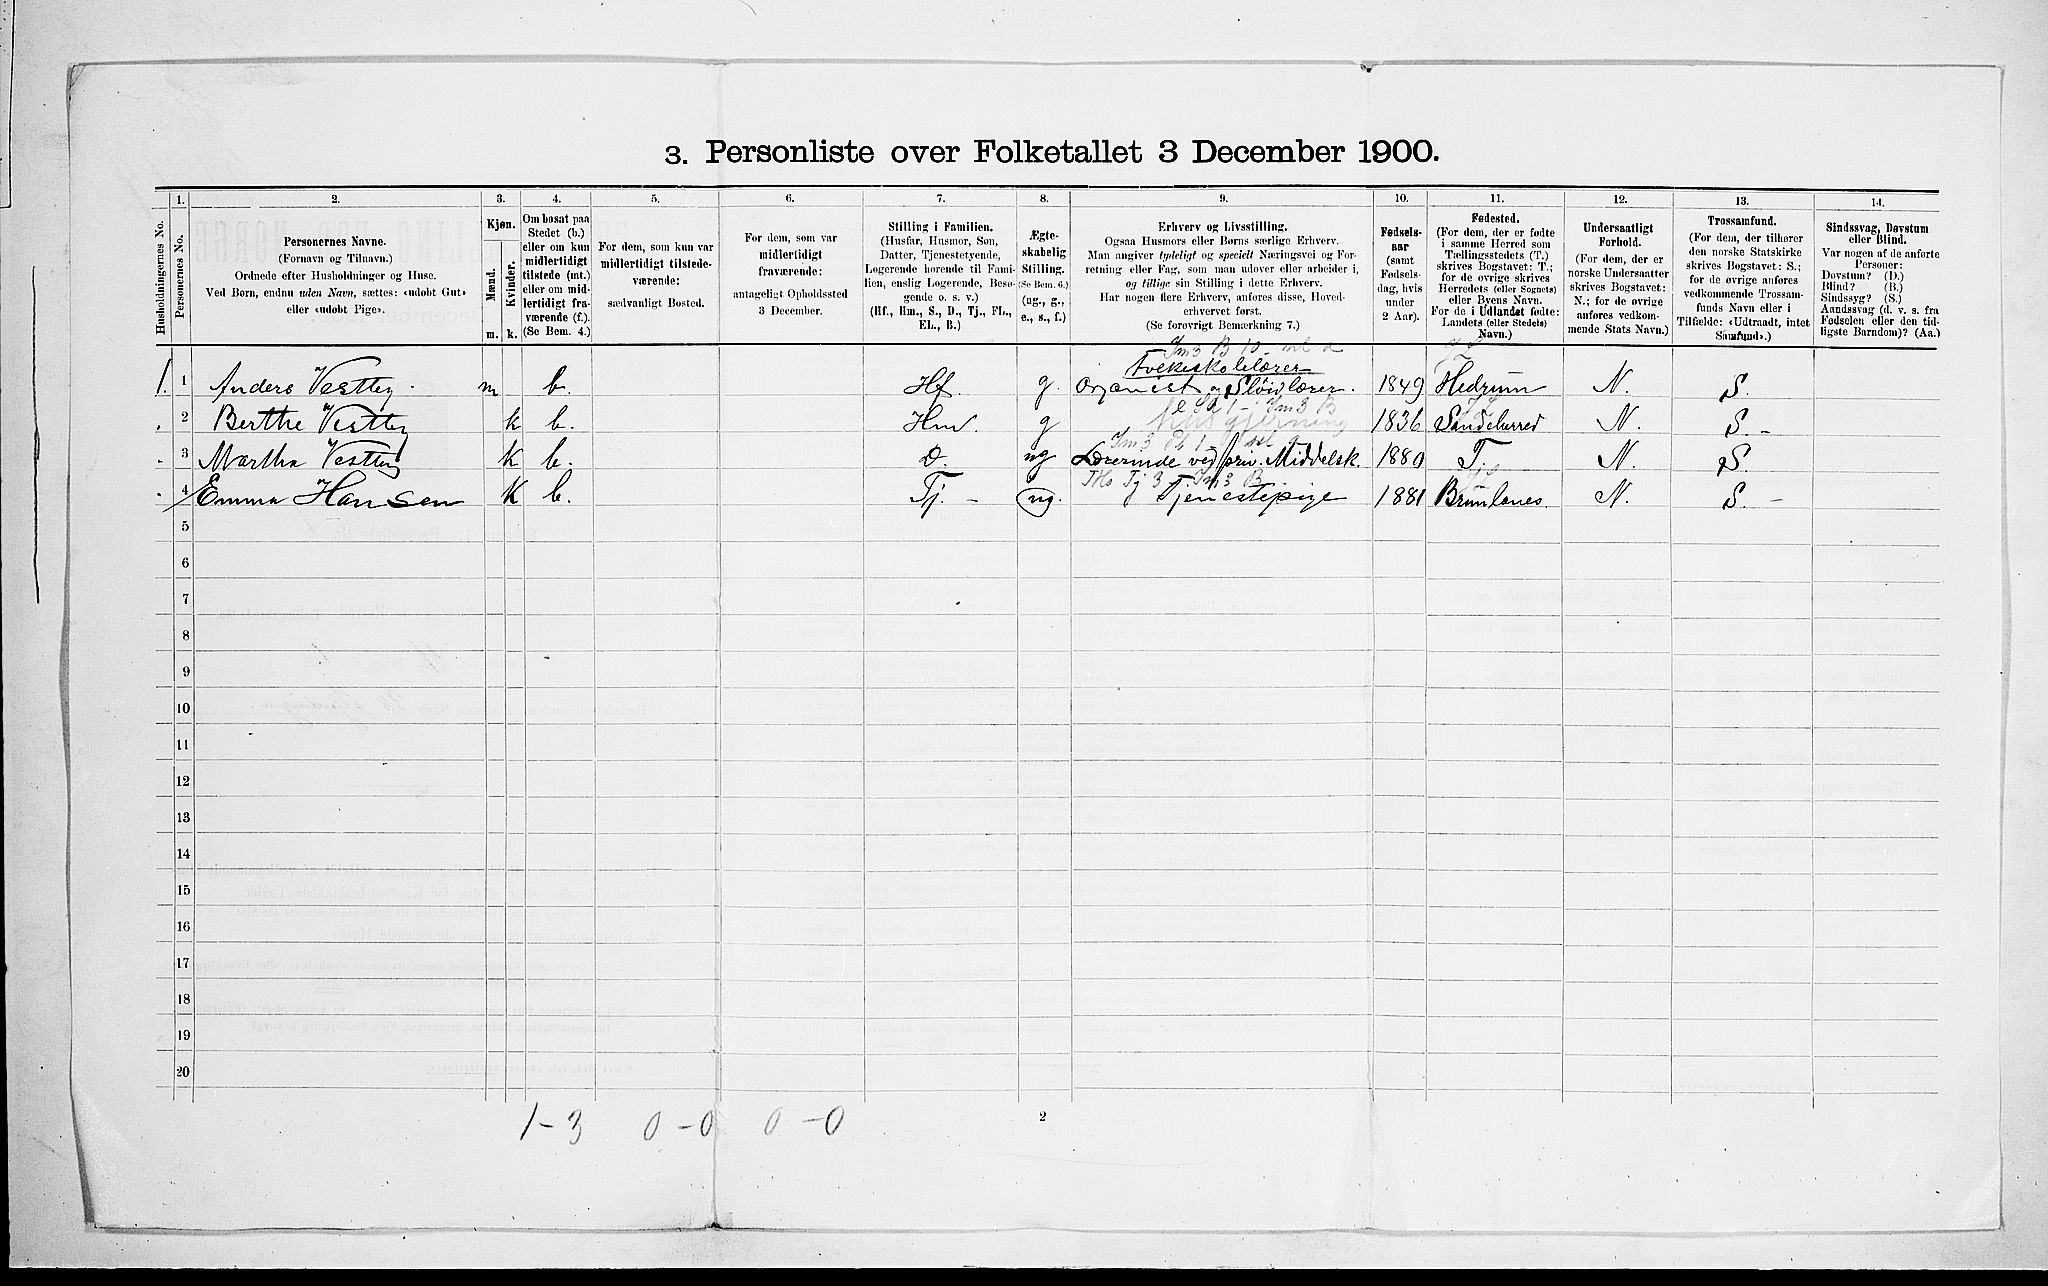 3. Personliste over Folketallet 3 December 1900.
1. 2. 3. 4. 5. 6. 7. 8. 9. 10. 11. 12. 13. 14.
Husholdningernes No.
Personernes No.
Personernes Navne.
(Fornavn og Tilnavn.)
Ordnede efter Husholdninger og Huse.
Ved Børn, endnu uden Navn, sættes: «udøbt Gut»
eller «udøbt Pige».
Kjøn.
Mænd.
Kvinder.
m. k.
Om bosat paa
Stedet (b.)
eller om kun
midlertidigt
tilstede (mt.)
eller om mid-
lertidigt fra-
værende (f.).
(Se Bem. 4.)
For dem, som kun var
midlertidigt tilstede-
værende:
sædvanligt Bosted.
For dem, som var
midlertidigt
fraværende:
antageligt Opholdssted
3 December.
Stilling i Familien.
(Husfar, Husmor, Søn,
Datter, Tjenestetyende,
Logerende hørende til Fami-
lien, enslig Logerende, Besø-
gende o. s. v.)
(Hf., Hm., S., D., Tj., FL.,
EL., B.)
Ægte-
skabelig
Stilling.
(Se Bem. 6.)
(ug., g.,
e., s., f.)
Erhverv og Livsstilling.
Ogsaa Husmors eller Børns særlige Erhverv.
Man angiver tydeligt og specielt Næringsvei og For-
retning eller Fag, som man udøver eller arbeider i,
og tillige sin Stilling i dette Erhverv.
Har nogen flere Erhverv, anføres disse, Hoved-
erhvervet først.
(Se forøvrigt Bemærkning 7.)
Fødsels-
aar
(samt
Fødsels-
dag, hvis
under
2 Aar).
Fødested.
(For dem, der er fødte
i samme Herred som
Tællingsstedets (T.)
skrives Bogstavet: T.;
for de øvrige skrives
Herredets (eller Sognets)
eller Byens Navn.
For de i Udlandet fødte:
Landets (eller Stedets)
Navn.)
Undersaatligt
Forhold.
(For dem, der er
norske Undersaatter
skrives Bogstavet:
N.; for de øvrige
anføres vedkom-
mende Stats Navn.)
Trossamfund.
(For dem, der tilhører
den norske Statskirke
skrives Bogstavet: S.;
for de øvrige anføres
vedkommende Trossam-
funds Navn eller i
Tilfælde: «Udtraadt, intet
Samfund».)
Sindssvag, Døvstum
eller Blind.
Var nogen af de anførte
Personer:
Døvstum? (D.)
Blind? (B.)
Sindssyg? (S.)
Aandssvag (d. v. s. fra
Fødselen eller den tid-
ligste Barndom)? (Aa.)
Im3 B 10
Folkeskolelærer
1. 1 Anders Vestby. m b. Hf. g. Organist og Sløidlærer. 1849 Hedrum N. S.
Im3 B
2 Berthe Vestby k b. Hm. g Husgjerning 1836 Sandeherred N. S. -
3 Martha Vestby k b. D. ug Lærerinde ved priv. Middelsk. 1880 T. N. S.
Tj 3 Im3 B
4 Emma Hansen k b. Tj. - ug. Tjenestepige 1881 Brunlanes. N. S. -
5
6
7
8
9
10
11
12
13
14
15
16
17
18
19
20
1-3 0-0 0-0
2